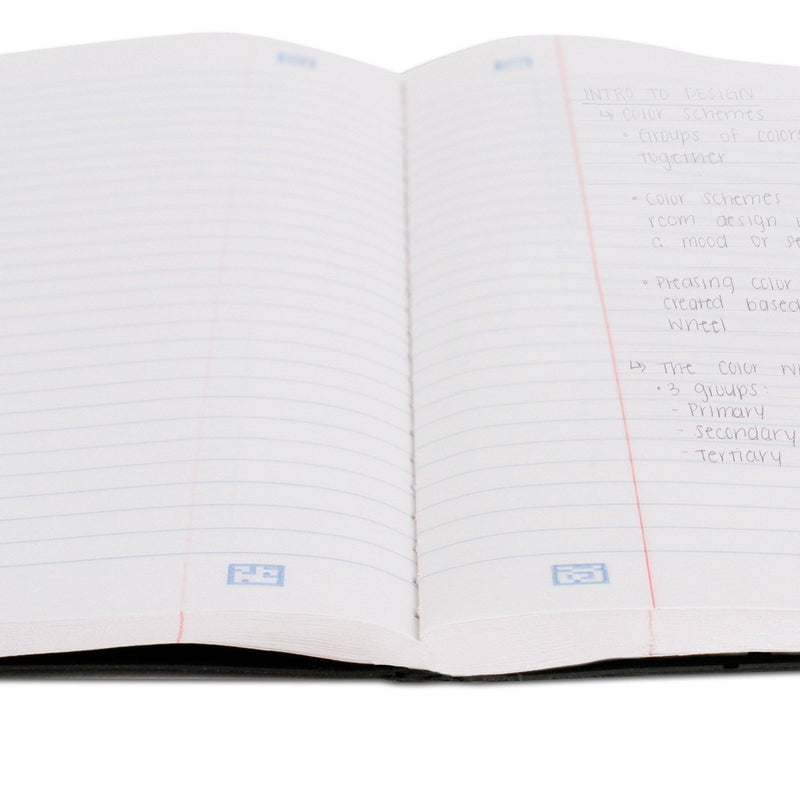 INTRO TO DESIGN
↳ Color schemes
• Groups of colors
together
• Color schemes
room design
a mood or se
• Pleasing color
created based
wheel
↳ The color wh
• 3 groups:
- Primary
- Secondary
- Tertiary